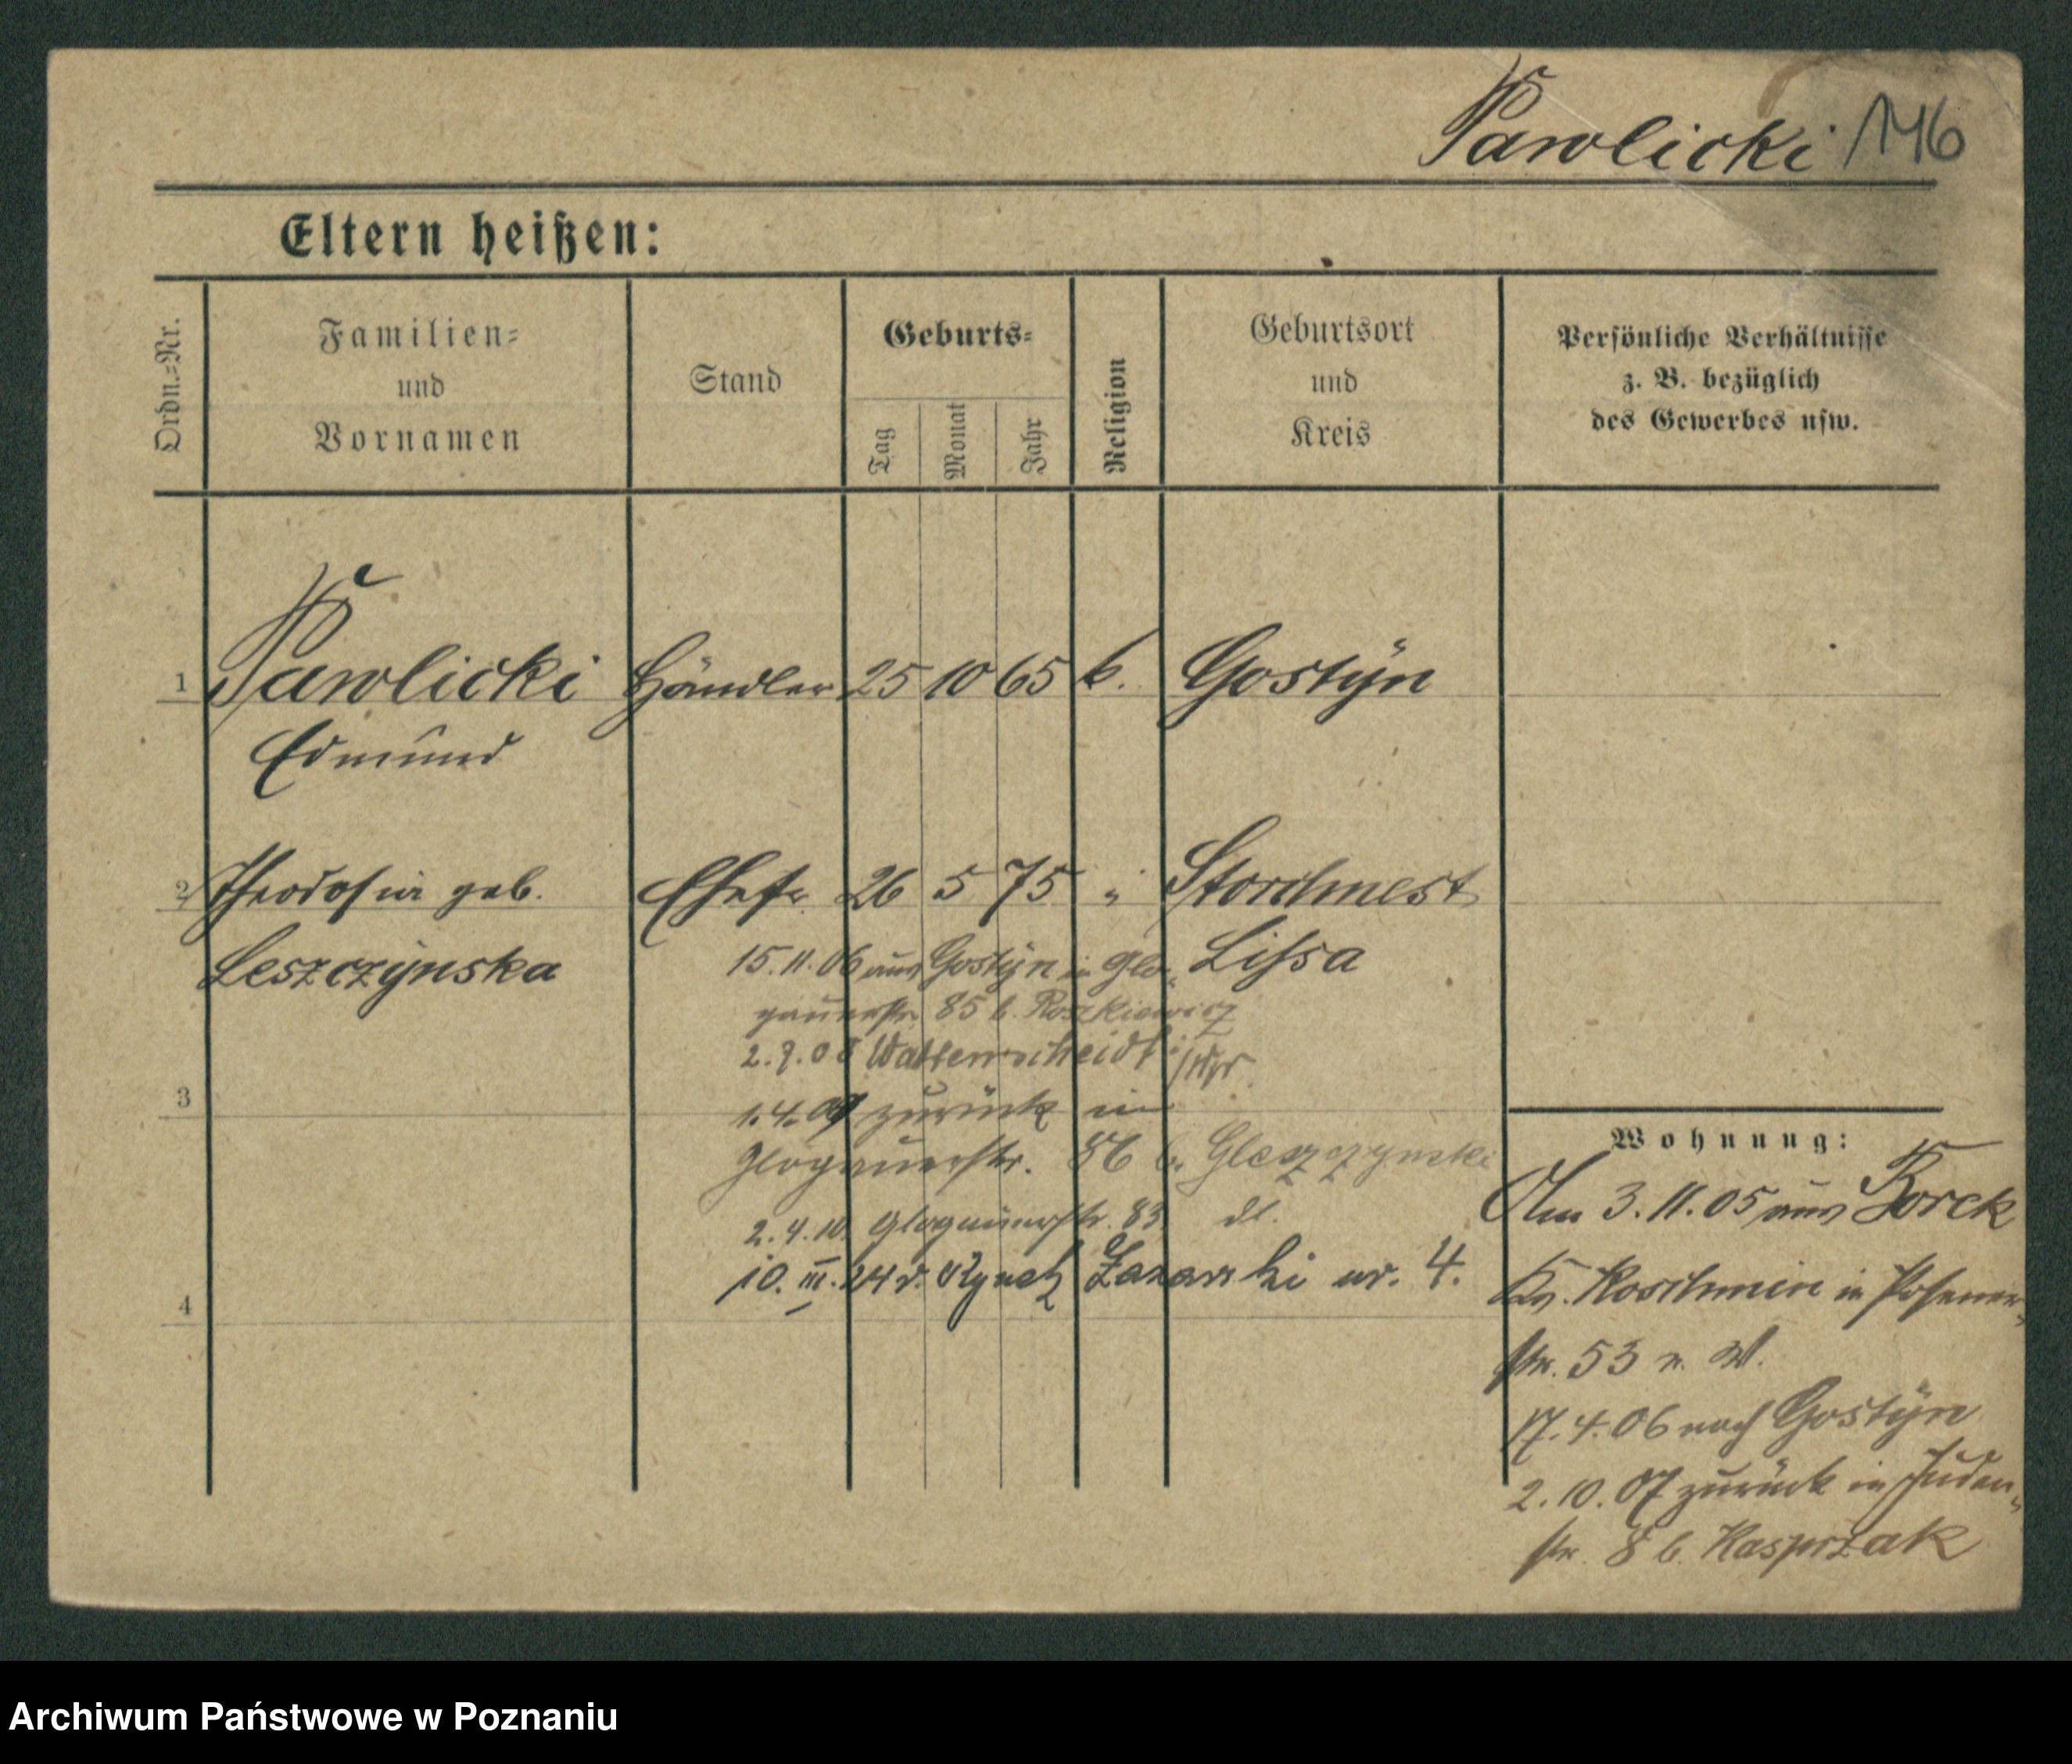 Pawlicki 146
Eltern heißen:
Ordn.=Nr.
Familien=
und
Vornamen
Stand
Geburts=
Tag
Monat
Jahr
Religion
Geburtsort
und
Kreis
Persönliche Verhältnisse
z. B. bezüglich
des Gewerbes usw.
1 Pawlicki Händler 25 10 65 k. Gostÿn
Edmund
2 Theodosia geb. Ehefr. 26 5 75 " Storchnest
Leszczÿnska Lissa
15.11.06 aus Gostÿn in Glo-
gauerstr. 85 b. Roszkiewicz
2.9.08 Wattenscheidt
3
1.4.09 zurück in
Glogauerstr. 86 b.
2.4.10. Glogauerstr. 83 dl.
10. III. 24 r. Rynek Łazarski nr. 4.
4
Wohnung:
Am 3.11.05 aus Borck
Kr. Koschmin in Posener-
str. 53 n. W.
17.4.06 nach Gostÿn
2.10.07 zurück in Juden-
str. 8 b. Kasprzak
Archiwum Państwowe w Poznaniu